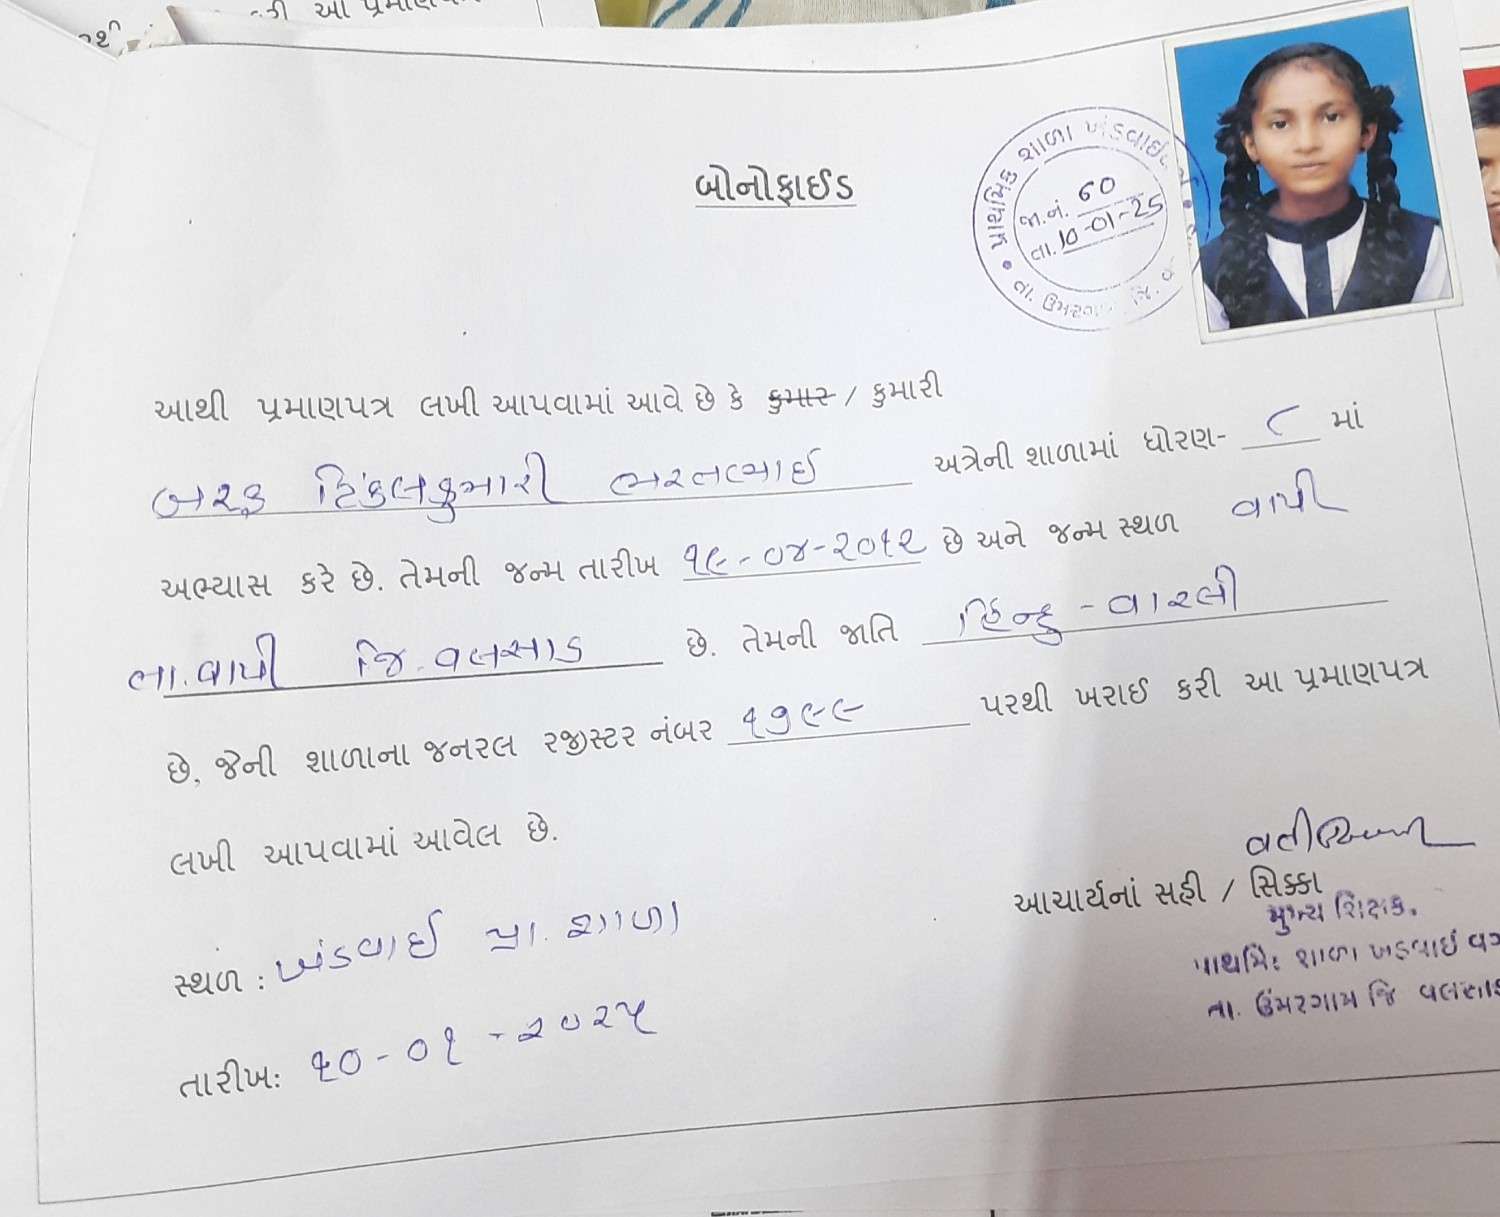 આ પ્રમાણપત્ર
બોનોફાઈડ
પ્રાથમિક શાળા ખંડવાઈ
જા.નં. 60
તા. 10-01-25
તા. ઉમરગામ જિ. વ
આથી પ્રમાણપત્ર લખી આપવામાં આવે છે કે કુમાર / કુમારી
બરફ ટિંકલકુમારી ભરતભાઈ અત્રેની શાળામાં ધોરણ- ૮ માં
અભ્યાસ કરે છે. તેમની જન્મ તારીખ ૧૯-૦૪-૨૦૧૨ છે અને જન્મ સ્થળ વાપી
તા. વાપી જિ. વલસાડ છે. તેમની જાતિ હિન્દુ - વારલી
છે, જેની શાળાના જનરલ રજીસ્ટર નંબર ૧૭૯૯ પરથી ખરાઈ કરી આ પ્રમાણપત્ર
લખી આપવામાં આવેલ છે.
આચાર્યનાં સહી / સિક્કા
મુખ્ય શિક્ષક.
સ્થળ : ખંડવાઈ પ્રા. શાળા
પ્રાથમિક શાળા ખંડવાઈ
તા. ઉમરગામ જિ વલસાડ
તારીખ: ૧૦-૦૧-૨૦૨૫